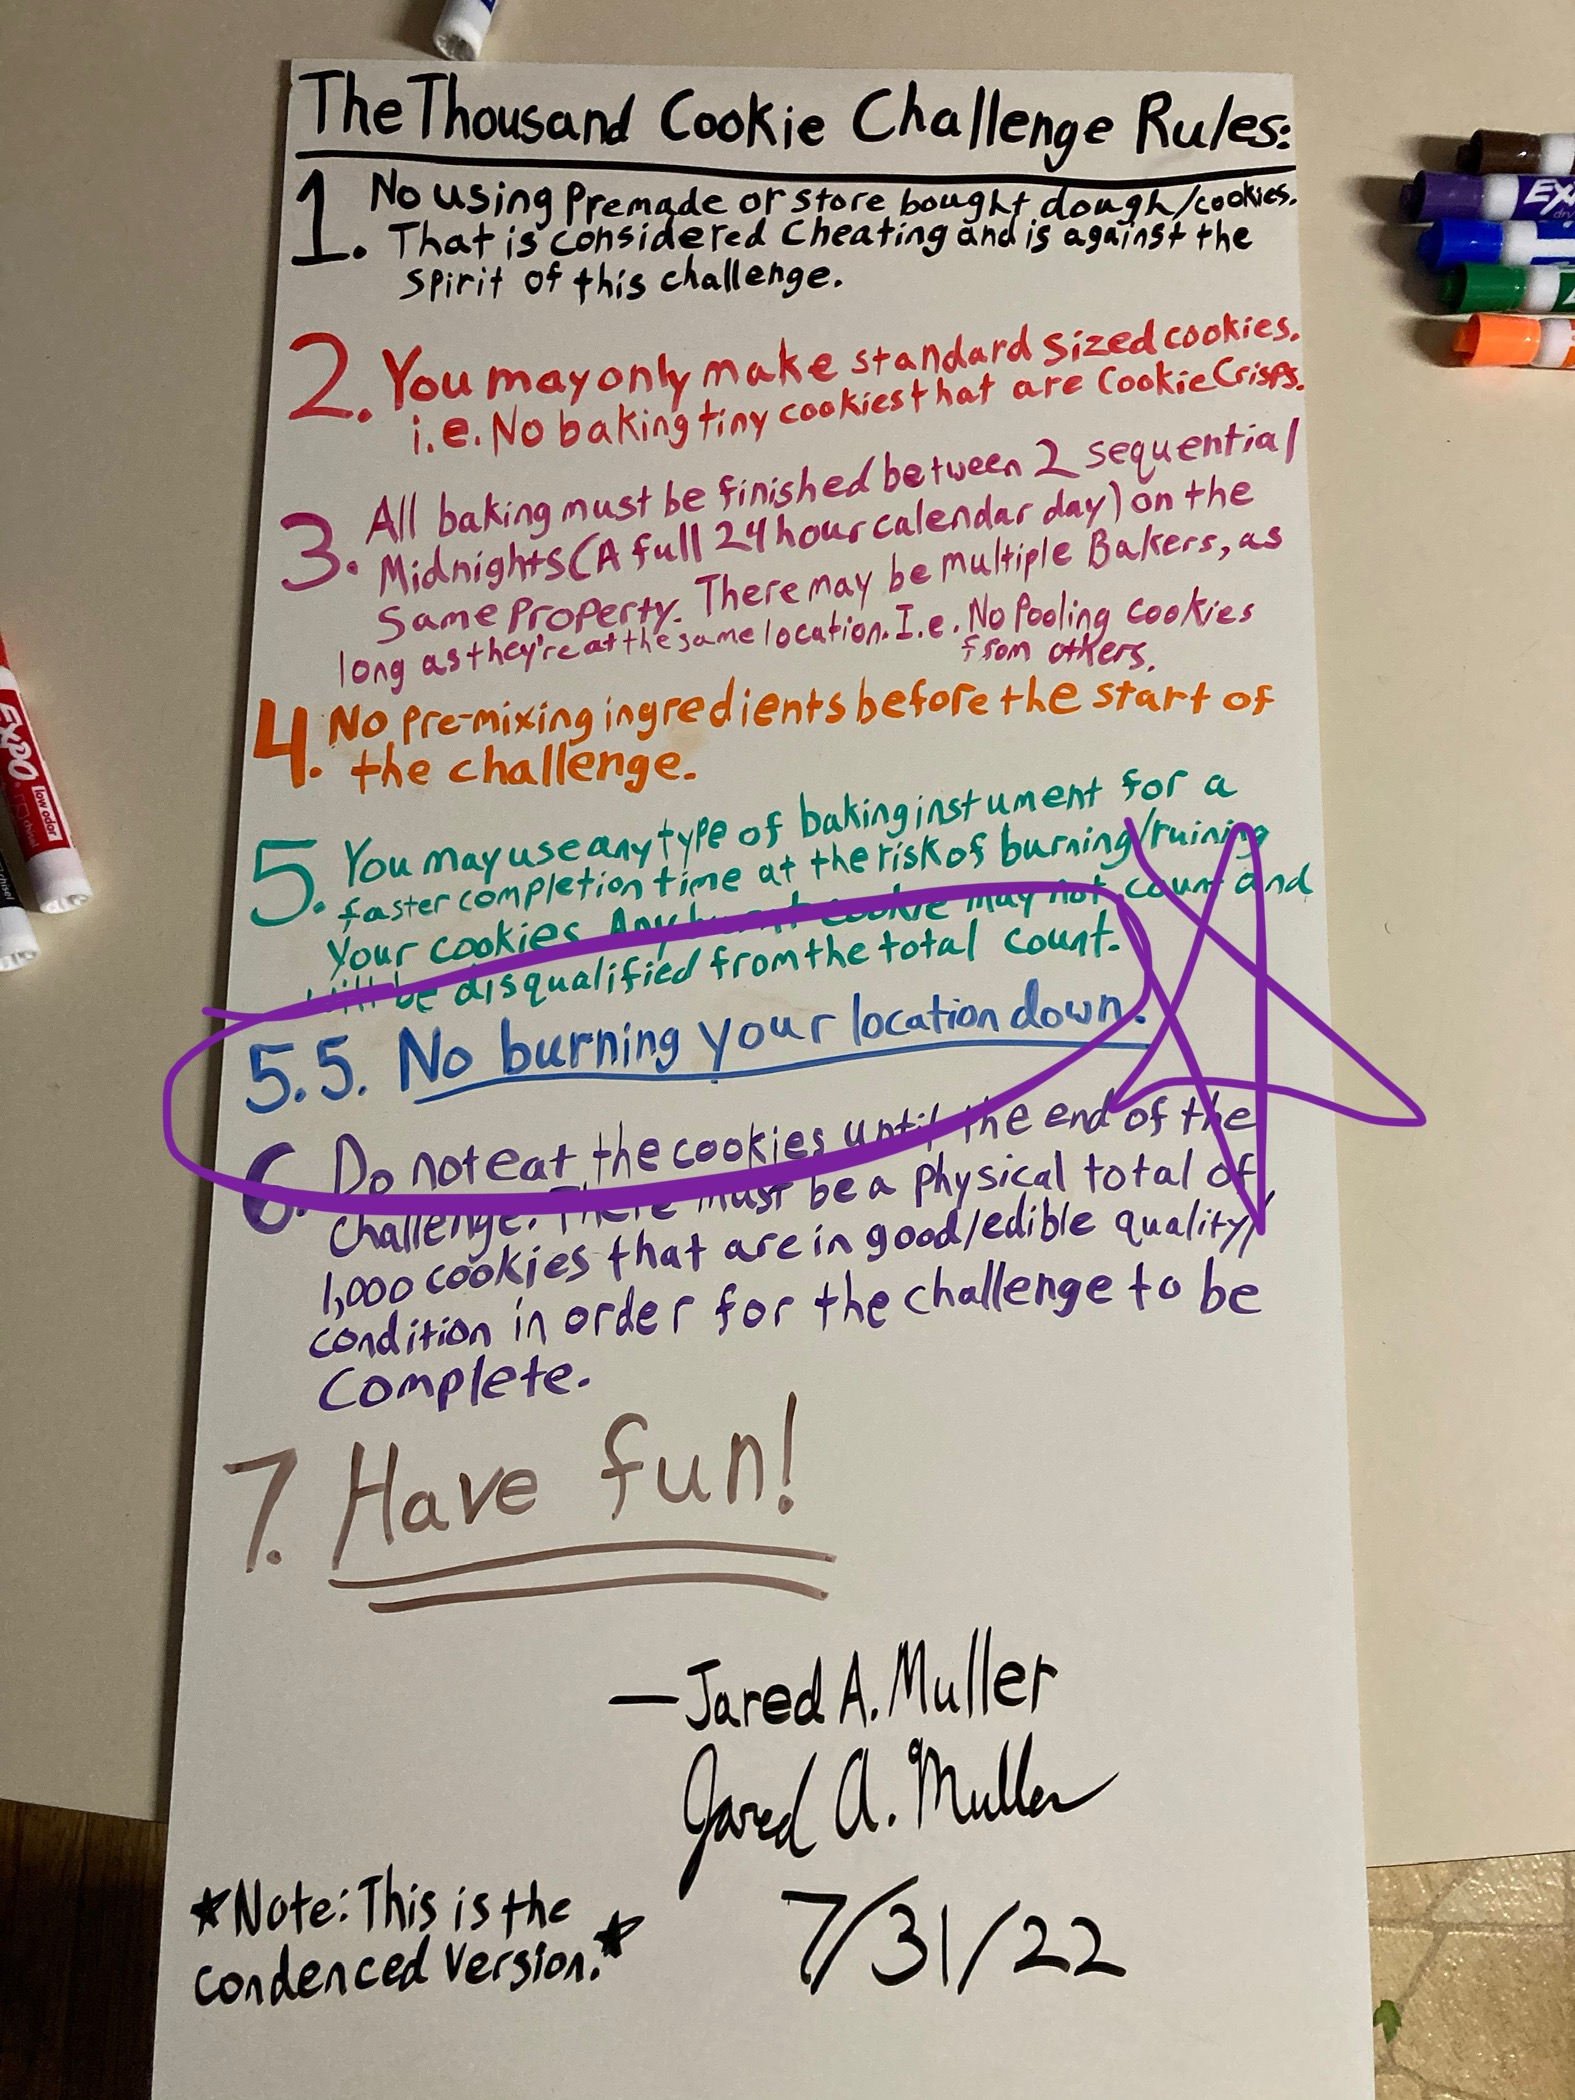 The Thousand Cookie Challenge Rules:
1. No using Premade or store bought dough/cookies.
That is considered Cheating and is against the
spirit of this challenge.
2. You may only make standard sized cookies.
i.e. No baking tiny cookies that are Cookie Crisps.
3. All baking must be finished between 2 sequential
Midnights (A full 24 hour calendar day) on the
Same Property. There may be multiple Bakers, as
long as they're at the same location. I.e. No Pooling cookies
from others.
4. No pre-mixing ingredients before the start of
the challenge.
5. You may use any type of baking instument for a
faster completion time at the risk of burning/ruining
Your cookies. Any burnt cookie may not count and
will be disqualified from the total count.
5.5. No burning your location down.
6. Do not eat the cookies until the end of the
challenge. There must be a physical total of
1,000 cookies that are in good/edible quality/
condition in order for the challenge to be
Complete.
7. Have fun!
— Jared A. Muller
Jared A. Muller
7/31/22
★Note: This is the
condensed version.★
EXPO
low odor
chisel
EX
dry